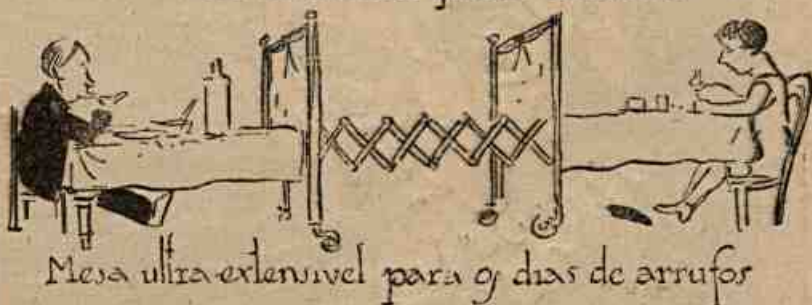 Mesa ultra-extensivel para os dias de arrufos